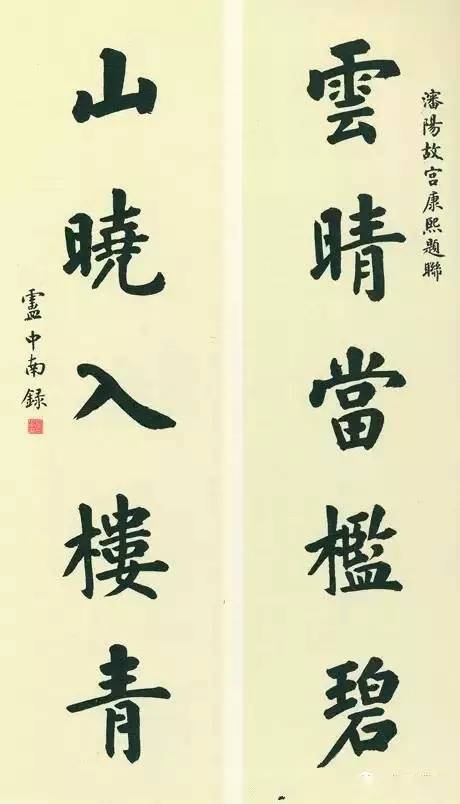 瀋陽故宮康熙題聯
雲晴當檻碧
山曉入樓青
盧中南録